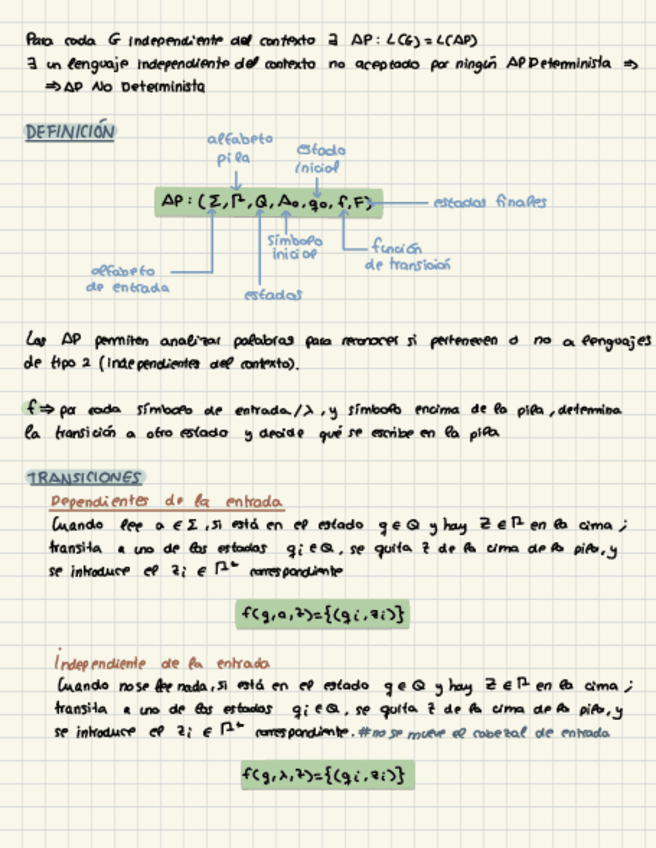 Para cada G independiente del contexto ∃ AP: L(G) = L(AP)
∃ un lenguaje independiente del contexto no aceptado por ningún AP Determinista ⇒
⇒ AP No Determinista
DEFINICIÓN
alfabeto
pila
estado
inicial
AP: (Σ, Γ, Q, A₀, q₀, f, F)
estados finales
símbolo
inicial
función
de transición
alfabeto
de entrada
estados
Los AP permiten analizar palabras para reconocer si pertenecen o no a lenguajes
de tipo 2 (independientes del contexto).
f ⇒ por cada símbolo de entrada/λ, y símbolo encima de la pila, determina
la transición a otro estado y decide qué se escribe en la pila
TRANSICIONES
Dependientes de la entrada
Cuando lee a ∈ Σ, si está en el estado q ∈ Q y hay Z ∈ Γ en la cima;
transita a uno de los estados qi ∈ Q, se quita Z de la cima de la pila, y
se introduce el zi ∈ Γ* correspondiente
f(q,a,z)={(qi,zi)}
Independiente de la entrada
Cuando no se lee nada, si está en el estado q ∈ Q y hay Z ∈ Γ en la cima;
transita a uno de los estados qi ∈ Q, se quita Z de la cima de la pila, y
se introduce el zi ∈ Γ* correspondiente. #no se mueve el cabezal de entrada
f(q,λ,z)={(qi,zi)}